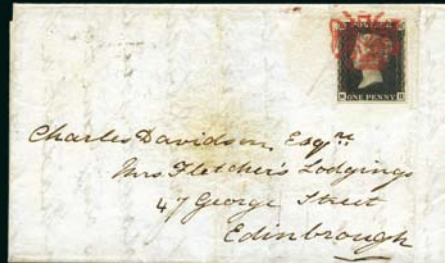 ONE PENNY
Charles Davidson, Esqre
Mrs Fletcher's Lodgings
47 George Street
Edinbrough